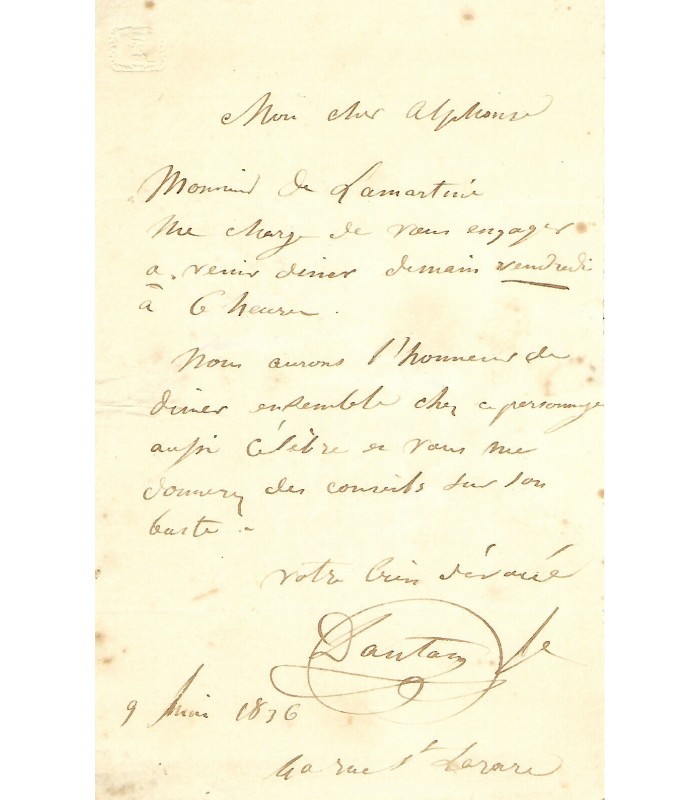 Mon cher Alphonse
Monsieur de Lamartine
me charge de vous engager
a venir diner demain vendredi
à 6 heures.
Nous aurons l'honneur de
diner ensemble chez ce personnage
aussi célèbre et vous me
donnerez des conseils sur son
buste.
votre bien dévoué
Dantan Je
9 1836
rue St Lazare